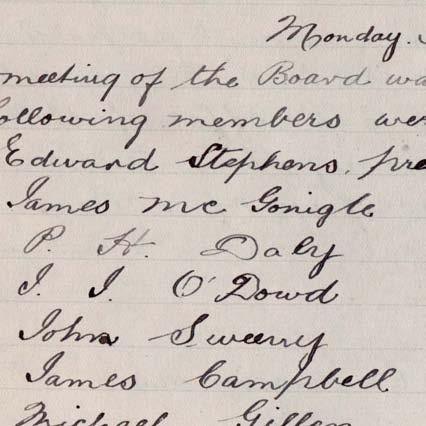 Monday.
meeting of the Board wa
following members wer
Edward Stephens, pre
James Mc Gonigle
P. H. Daly
J. J. O'Dowd
John Sweeny
James Campbell
Michael Gillen